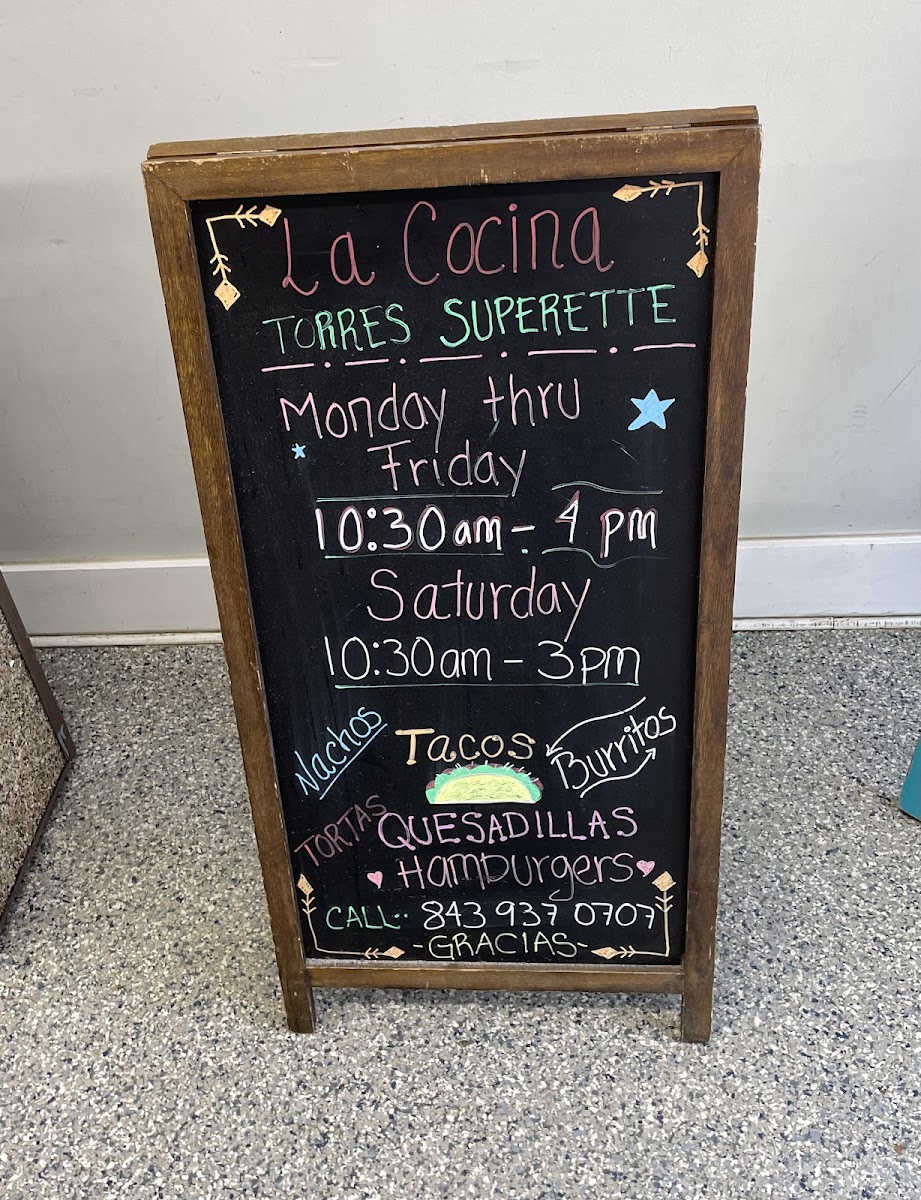 La Cocina
TORRES SUPERETTE
Monday thru
Friday
10:30am - 4 pm
Saturday
10:30am - 3pm
Nachos
Tacos
Burritos
TORTAS
QUESADILLAS
HAMBurgers
CALL·· 843 937 0707
-GRACIAS-